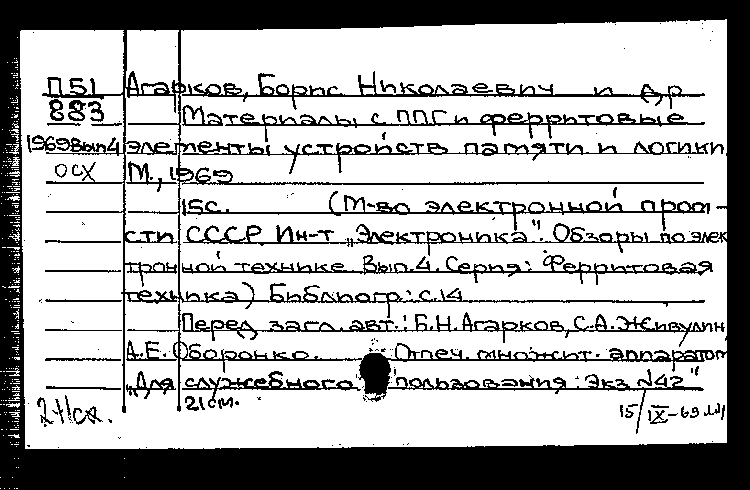 П51 Агарков, Борис Николаевич и др
883 Материалы с ППГ и ферритовые
1969 Вып 4 элементы устройств памяти и логики
ОСХ М., 1969
15с. (М-во электронной пром-
сти СССР. Ин-т "Электроника". Обзоры по элек
тронной технике Вып. 4. Серия: Ферритовая
техника) Библиогр: с.14
Перед загл. авт.: Б.Н. Агарков, С.А. Живулин,
А.Е. Оборонко. Отпеч. множит. аппаратом
"Для служебного пользования: Экз №42"
21см.
15/IX-69